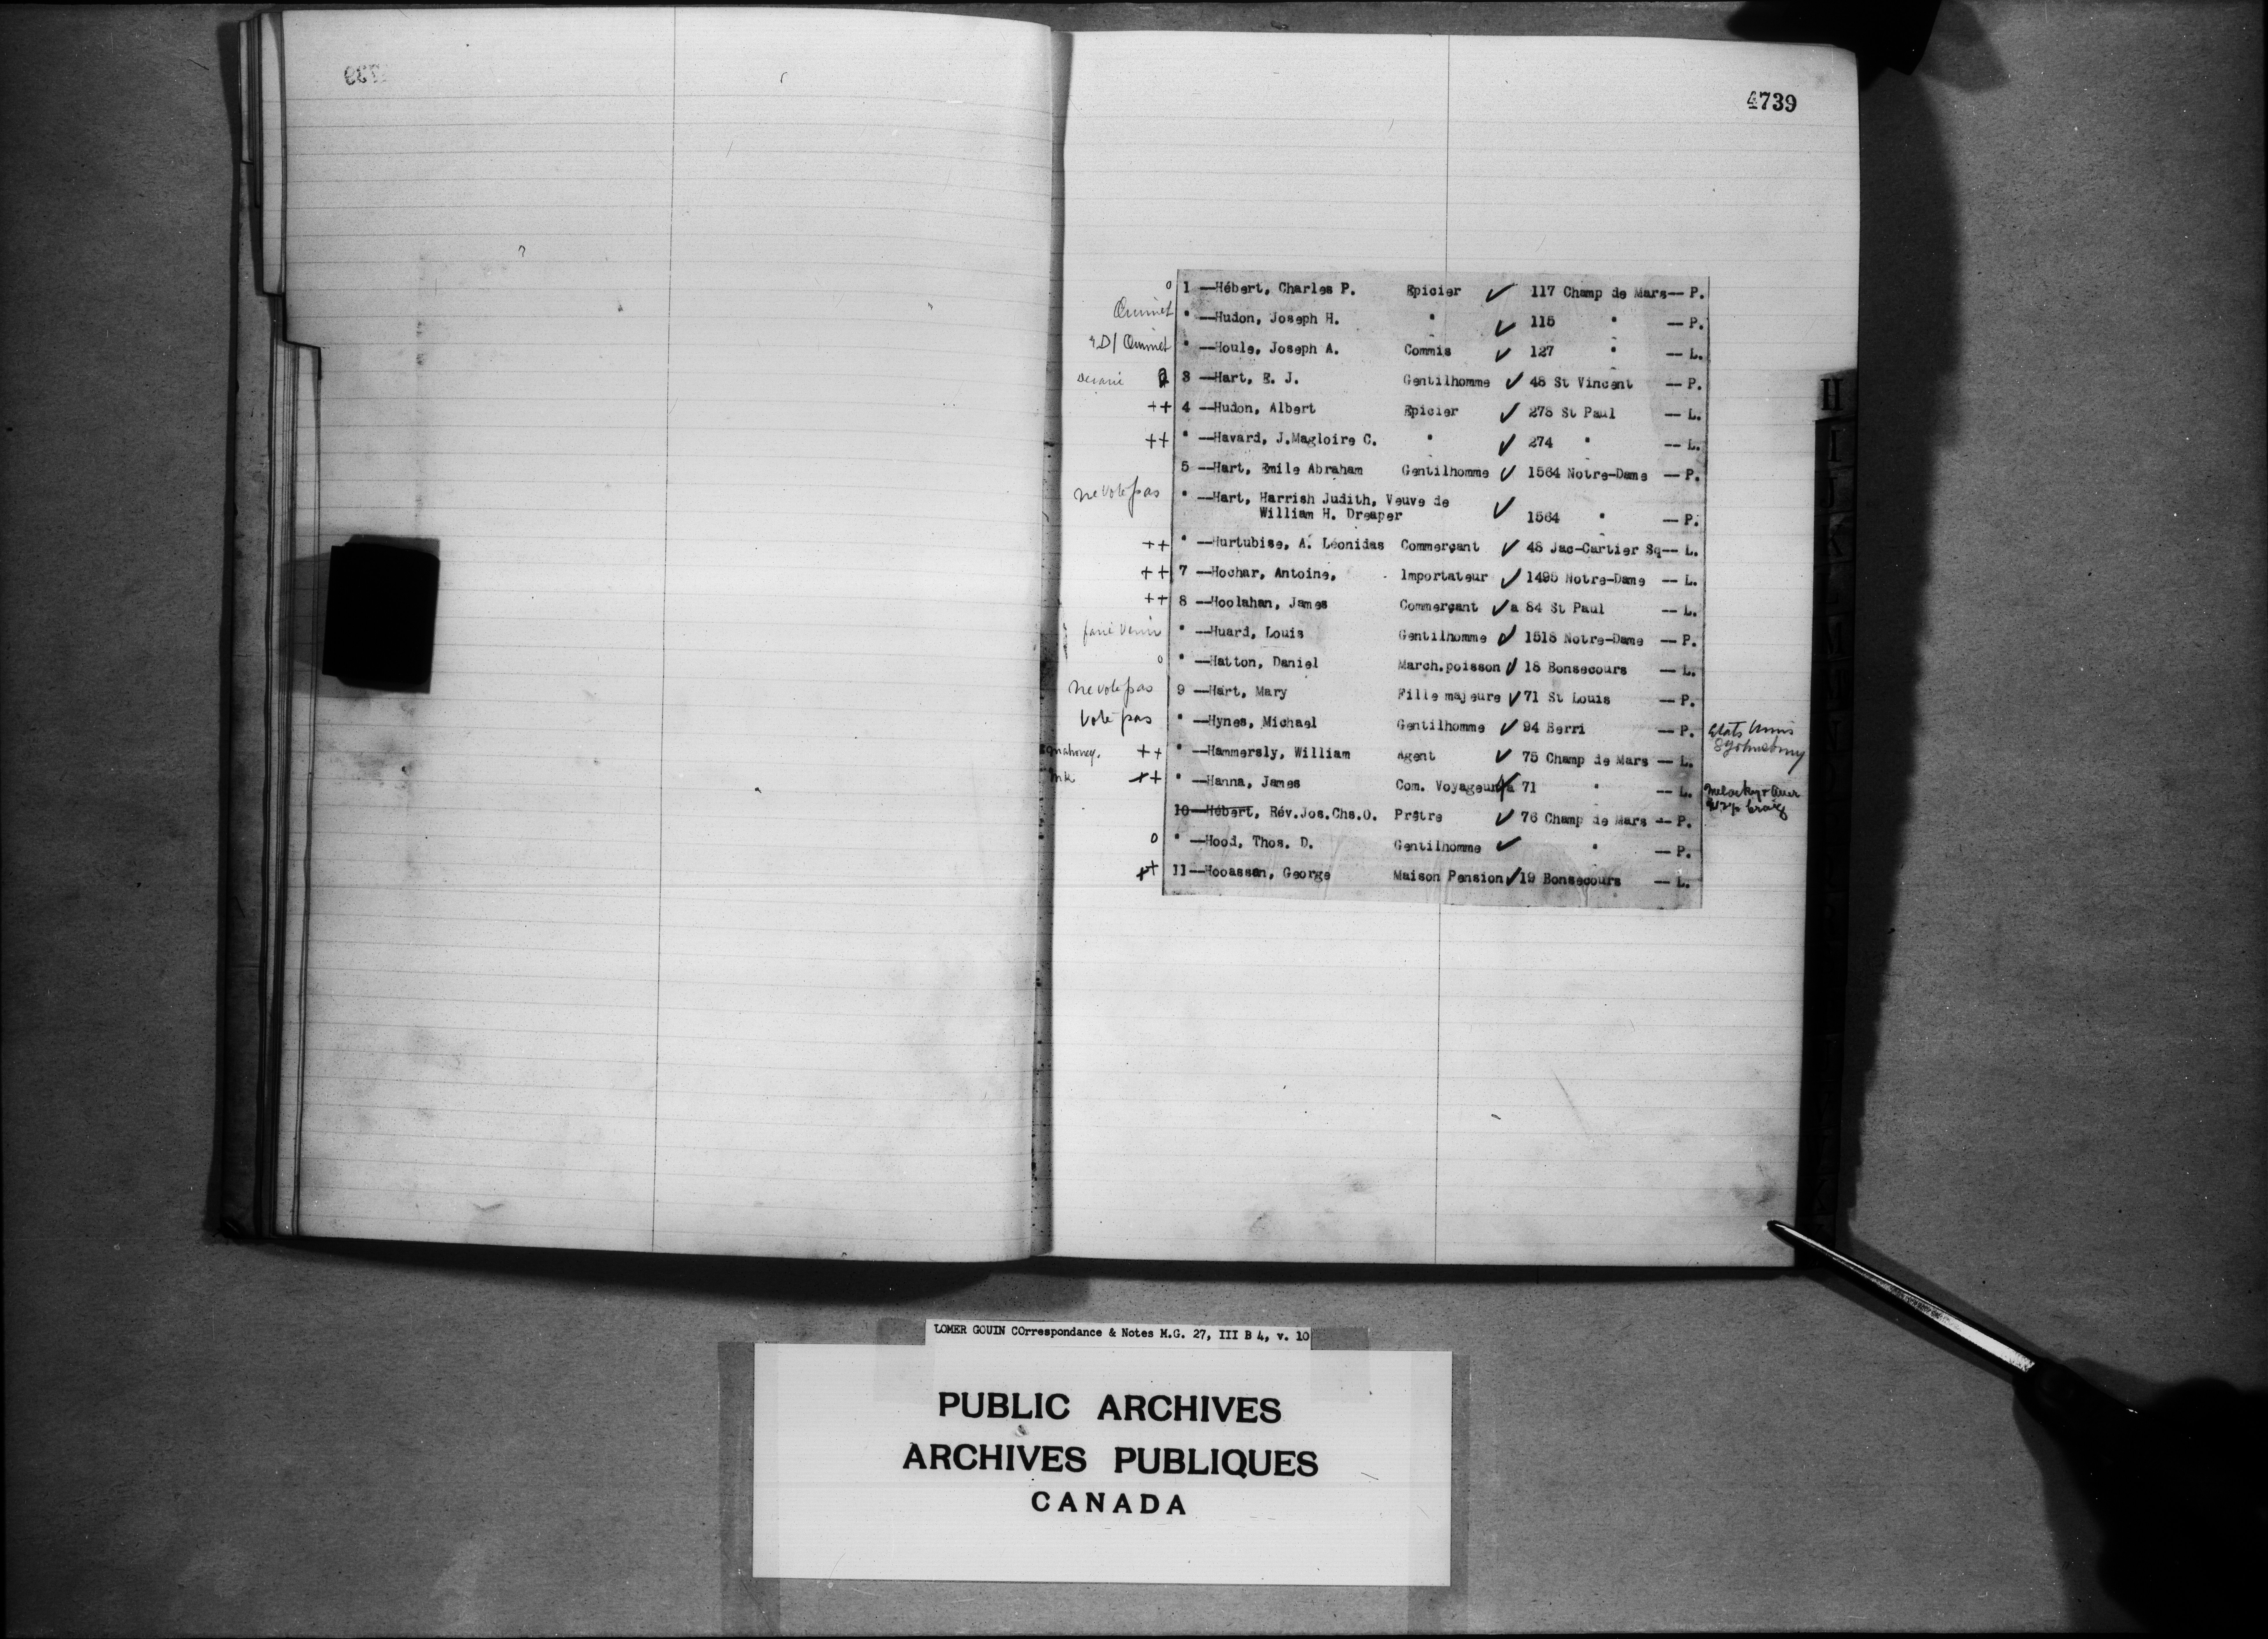 4739
o 1 —Hébert, Charles P. Epicier ✓ 117 Champ de Mars-- P.
Ouimet " —Hudon, Joseph H. " ✓ 115 " -- P.
Ouimet " —Houle, Joseph A. Commis ✓ 127 " -- L.
3 —Hart, E. J. Gentilhomme ✓ 48 St Vincent -- P.
++ 4 —Hudon, Albert Epicier ✓ 278 St Paul -- L.
++ " —Havard, J.Magloire C. " ✓ 274 " -- L.
5 —Hart, Emile Abraham Gentilhomme ✓ 1564 Notre-Dame -- P.
ne vote pas " —Hart, Harrish Judith, Veuve de
William H. Dreaper ✓ 1564 " -- P.
++ " —Hurtubise, A. Léonidas Commerçant ✓ 48 Jac-Cartier Sq-- L.
++ 7 —Hochar, Antoine, Importateur ✓ 1495 Notre-Dame -- L.
++ 8 —Hoolahan, James Commerçant ✓ a 84 St Paul -- L.
faire venir " —Huard, Louis Gentilhomme ✓ 1518 Notre-Dame -- P.
o " —Hatton, Daniel March.poisson ✓ 18 Bonsecours -- L.
ne vote pas 9 —Hart, Mary Fille majeure ✓ 71 St Louis -- P.
Vote pas " —Hynes, Michael Gentilhomme ✓ 94 Berri -- P. Etats Unis
++ " —Hammersly, William Agent ✓ 75 Champ de Mars -- L.
++ " —Hanna, James Com. Voyageur ✓ a 71 " -- L.
10—Hébert, Rév.Jos.Chs.O. Prêtre ✓ 76 Champ de Mars -- P.
o " —Hood, Thos. D. Gentilhomme ✓ " -- P.
++ 11—Hooassan, George Maison Pension ✓ 19 Bonsecours -- L.
H
I
J
K
LOMER GOUIN COrrespondance & Notes M.G. 27, III B 4, v. 10
PUBLIC ARCHIVES
ARCHIVES PUBLIQUES
CANADA